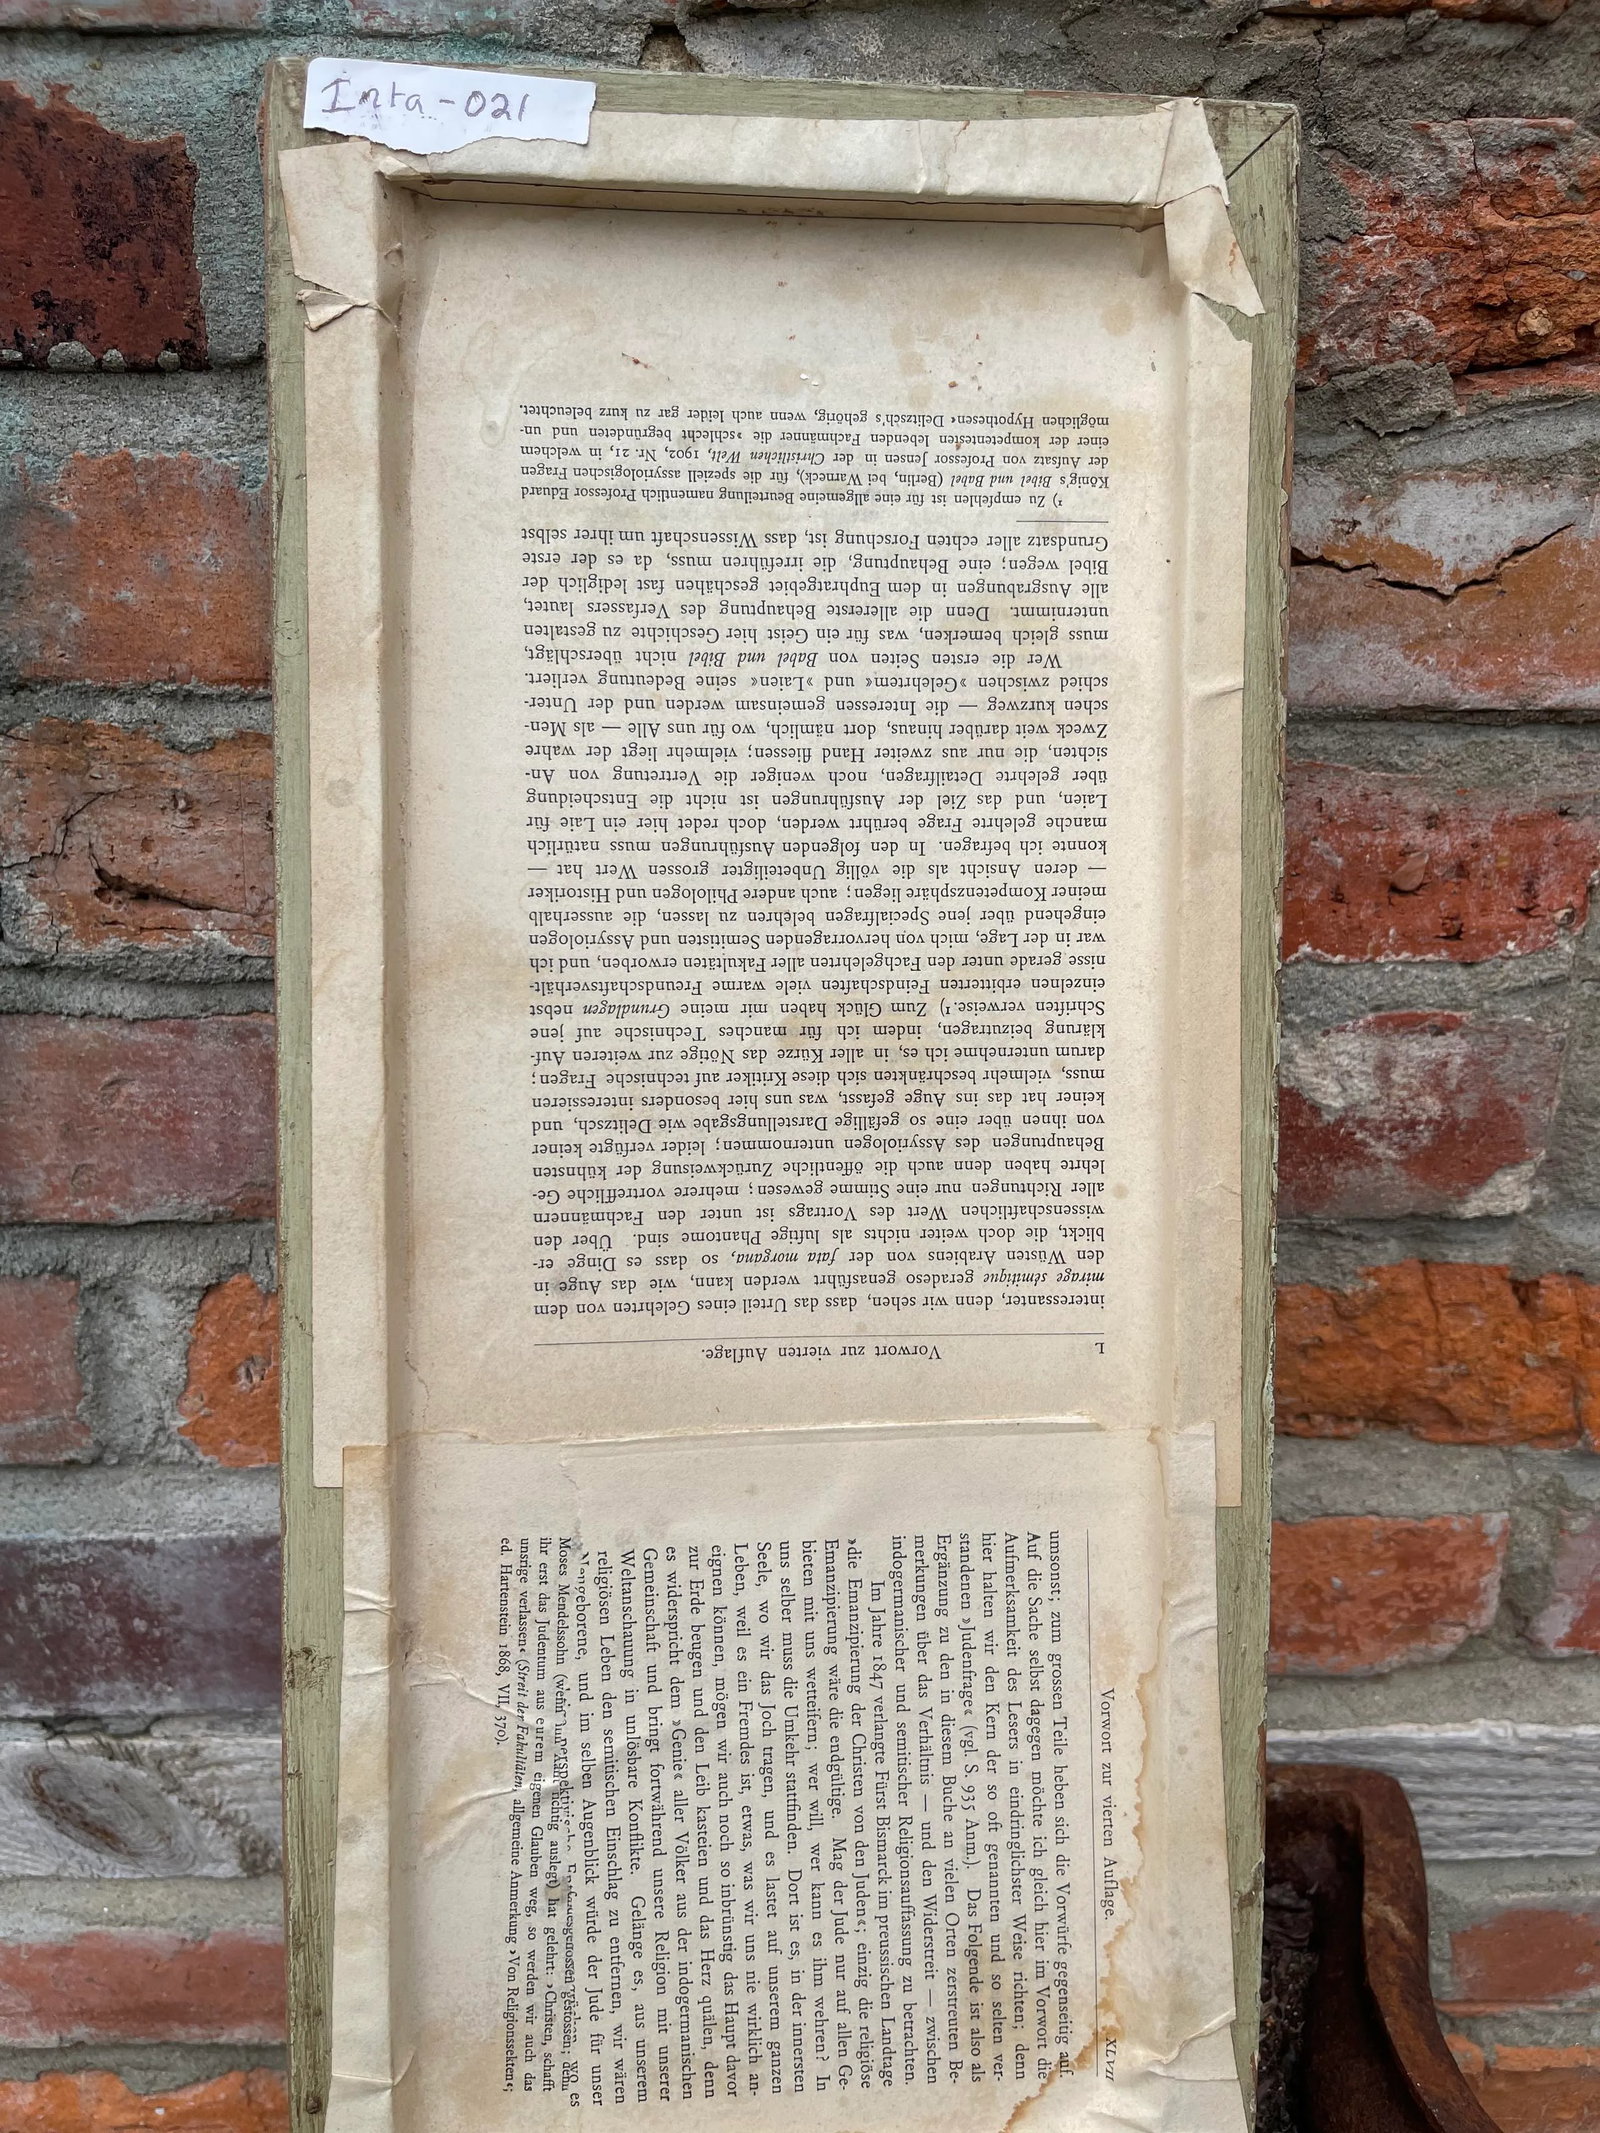 Inta-021
L
Vorwort zur vierten Auflage.
interessanter, denn wir sehen, dass das Urteil eines Gelehrten von dem
mirage sémitique geradeso genasführt werden kann, wie das Auge in
den Wüsten Arabiens von der fata morgana, so dass es Dinge er-
blickt, die doch weiter nichts als luftige Phantome sind. Über den
wissenschaftlichen Wert des Vortrags ist unter den Fachmännern
aller Richtungen nur eine Stimme gewesen; mehrere vortreffliche Ge-
lehrte haben denn auch die öffentliche Zurückweisung der kühnsten
Behauptungen des Assyriologen unternommen; leider verfügte keiner
von ihnen über eine so gefällige Darstellungsgabe wie Delitzsch, und
keiner hat das ins Auge gefasst, was uns hier besonders interessieren
muss, vielmehr beschränkten sich diese Kritiker auf technische Fragen;
darum unternehme ich es, in aller Kürze das Nötige zur weiteren Auf-
klärung beizutragen, indem ich für manches Technische auf jene
Schriften verweise.¹) Zum Glück haben mir meine Grundlagen nebst
einzelnen erbitterten Feindschaften viele warme Freundschaftsverhält-
nisse gerade unter den Fachgelehrten aller Fakultäten erworben, und ich
war in der Lage, mich von hervorragenden Semitisten und Assyriologen
eingehend über jene Specialfragen belehren zu lassen, die ausserhalb
meiner Kompetenzsphäre liegen; auch andere Philologen und Historiker
— deren Ansicht als die völlig Unbeteiligter grossen Wert hat —
konnte ich befragen. In den folgenden Ausführungen muss natürlich
manche gelehrte Frage berührt werden, doch redet hier ein Laie für
Laien, und das Ziel der Ausführungen ist nicht die Entscheidung
über gelehrte Detailfragen, noch weniger die Vertretung von An-
sichten, die nur aus zweiter Hand fliessen; vielmehr liegt der wahre
Zweck weit darüber hinaus, dort nämlich, wo für uns Alle — als Men-
schen kurzweg — die Interessen gemeinsam werden und der Unter-
schied zwischen »Gelehrtem« und »Laien« seine Bedeutung verliert.
Wer die ersten Seiten von Babel und Bibel nicht überschlägt,
muss gleich bemerken, was für ein Geist hier Geschichte zu gestalten
unternimmt. Denn die allererste Behauptung des Verfassers lautet,
alle Ausgrabungen in dem Euphratgebiet geschähen fast lediglich der
Bibel wegen; eine Behauptung, die irreführen muss, da es der erste
Grundsatz aller echten Forschung ist, dass Wissenschaft um ihrer selbst
¹) Zu empfehlen ist für eine allgemeine Beurteilung namentlich Professor Eduard
König's Bibel und Babel (Berlin, bei Warneck), für die speziell assyriologischen Fragen
der Aufsatz von Professor Jensen in der Christlichen Welt, 1902, Nr. 21, in welchem
einer der kompetentesten lebenden Fachmänner die »schlecht begründeten und un-
möglichen Hypothesen« Delitzsch's gehörig, wenn auch leider gar zu kurz beleuchtet.
Vorwort zur vierten Auflage.
XLVII
umsonst; zum grossen Teile heben sich die Vorwürfe gegenseitig auf.
Auf die Sache selbst dagegen möchte ich gleich hier im Vorwort die
Aufmerksamkeit des Lesers in eindringlichster Weise richten; denn
hier halten wir den Kern der so oft genannten und so selten ver-
standenen »Judenfrage« (vgl. S. 935 Anm.). Das Folgende ist also als
Ergänzung zu den in diesem Buche an vielen Orten zerstreuten Be-
merkungen über das Verhältnis — und den Widerstreit — zwischen
indogermanischer und semitischer Religionsauffassung zu betrachten.
Im Jahre 1847 verlangte Fürst Bismarck im preussischen Landtage
»die Emanzipierung der Christen von den Juden«; einzig die religiöse
Emanzipierung wäre die endgültige. Mag der Jude nur auf allen Ge-
bieten mit uns wetteifern; wer will, wer kann es ihm wehren? In
uns selber muss die Umkehr stattfinden. Dort ist es, in der innersten
Seele, wo wir das Joch tragen, und es lastet auf unserem ganzen
Leben, weil es ein Fremdes ist, etwas, was wir uns nie wirklich an-
eignen können, mögen wir auch noch so inbrünstig das Haupt davor
zur Erde beugen und den Leib kasteien und das Herz quälen, denn
es widerspricht dem »Genie« aller Völker aus der indogermanischen
Gemeinschaft und bringt fortwährend unsere Religion mit unserer
Weltanschauung in unlösbare Konflikte. Gelänge es, aus unserem
religiösen Leben den semitischen Einschlag zu entfernen, wir wären
und im selben Augenblick würde der Jude für unser
perspektivische wo es
Moses Mendelssohn (wenn ihn Kant richtig auslegt) hat gelehrt: »Christen, schafft
ihr erst das Judentum aus eurem eigenen Glauben weg, so werden wir auch das
unsrige verlassen« (Streit der Fakultäten, allgemeine Anmerkung »Von Religionssekten«;
ed. Hartenstein 1868, VII, 370).